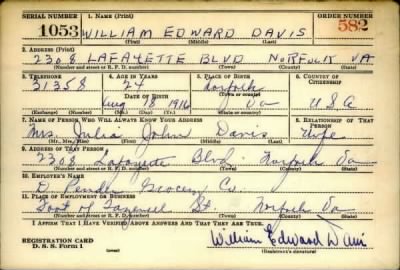 SERIAL NUMBER 1. NAME (Print) ORDER NUMBER
1053 WILLIAM EDWARD DAVIS 582
(First) (Middle) (Last)
2. ADDRESS (Print)
2308 LAFAYETTE BLVD NORFOLK VA
(Number and street or R. F. D. number) (Town) (County) (State)
3. TELEPHONE 4. AGE IN YEARS 5. PLACE OF BIRTH 6. COUNTRY OF CITIZENSHIP
31358 24 Norfolk
DATE OF BIRTH (Town or county)
Aug 18 1916 Va U S A
(Exchange) (Number) (Mo.) (Day) (Yr.) (State or country)
7. NAME OF PERSON WHO WILL ALWAYS KNOW YOUR ADDRESS 8. RELATIONSHIP OF THAT PERSON
Mrs. Julia John Davis Wife
(Mr., Mrs., Miss) (First) (Middle) (Last)
9. ADDRESS OF THAT PERSON
2308 Lafayette Blvd. Norfolk Va
(Number and street or R. F. D. number) (Town) (County) (State)
10. EMPLOYER'S NAME
D. Pender Grocery Co.
11. PLACE OF EMPLOYMENT OR BUSINESS
Foot of Tazewell St. Norfolk Va
(Number and street or R. F. D. number) (Town) (County) (State)
I AFFIRM THAT I HAVE VERIFIED ABOVE ANSWERS AND THAT THEY ARE TRUE.
REGISTRATION CARD
D. S. S. Form 1 William Edward Davis
(Registrant's signature)